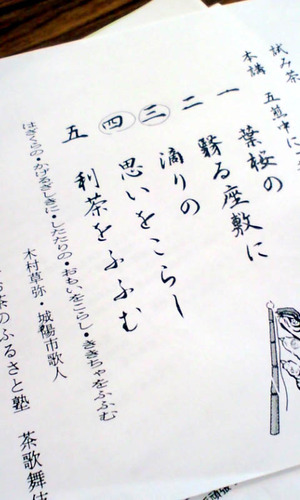 試み茶 五煎中に
本講
一 葉桜の
二 翳る座敷に
三 滴りの
四 思いをこらし
五 利茶をふふむ
はざくらの・かげるざしきに・したたりの・おもいをこらし・ききちゃをふふむ
木村草弥・城陽市歌人
お茶のふるさと塾 茶歌舞伎